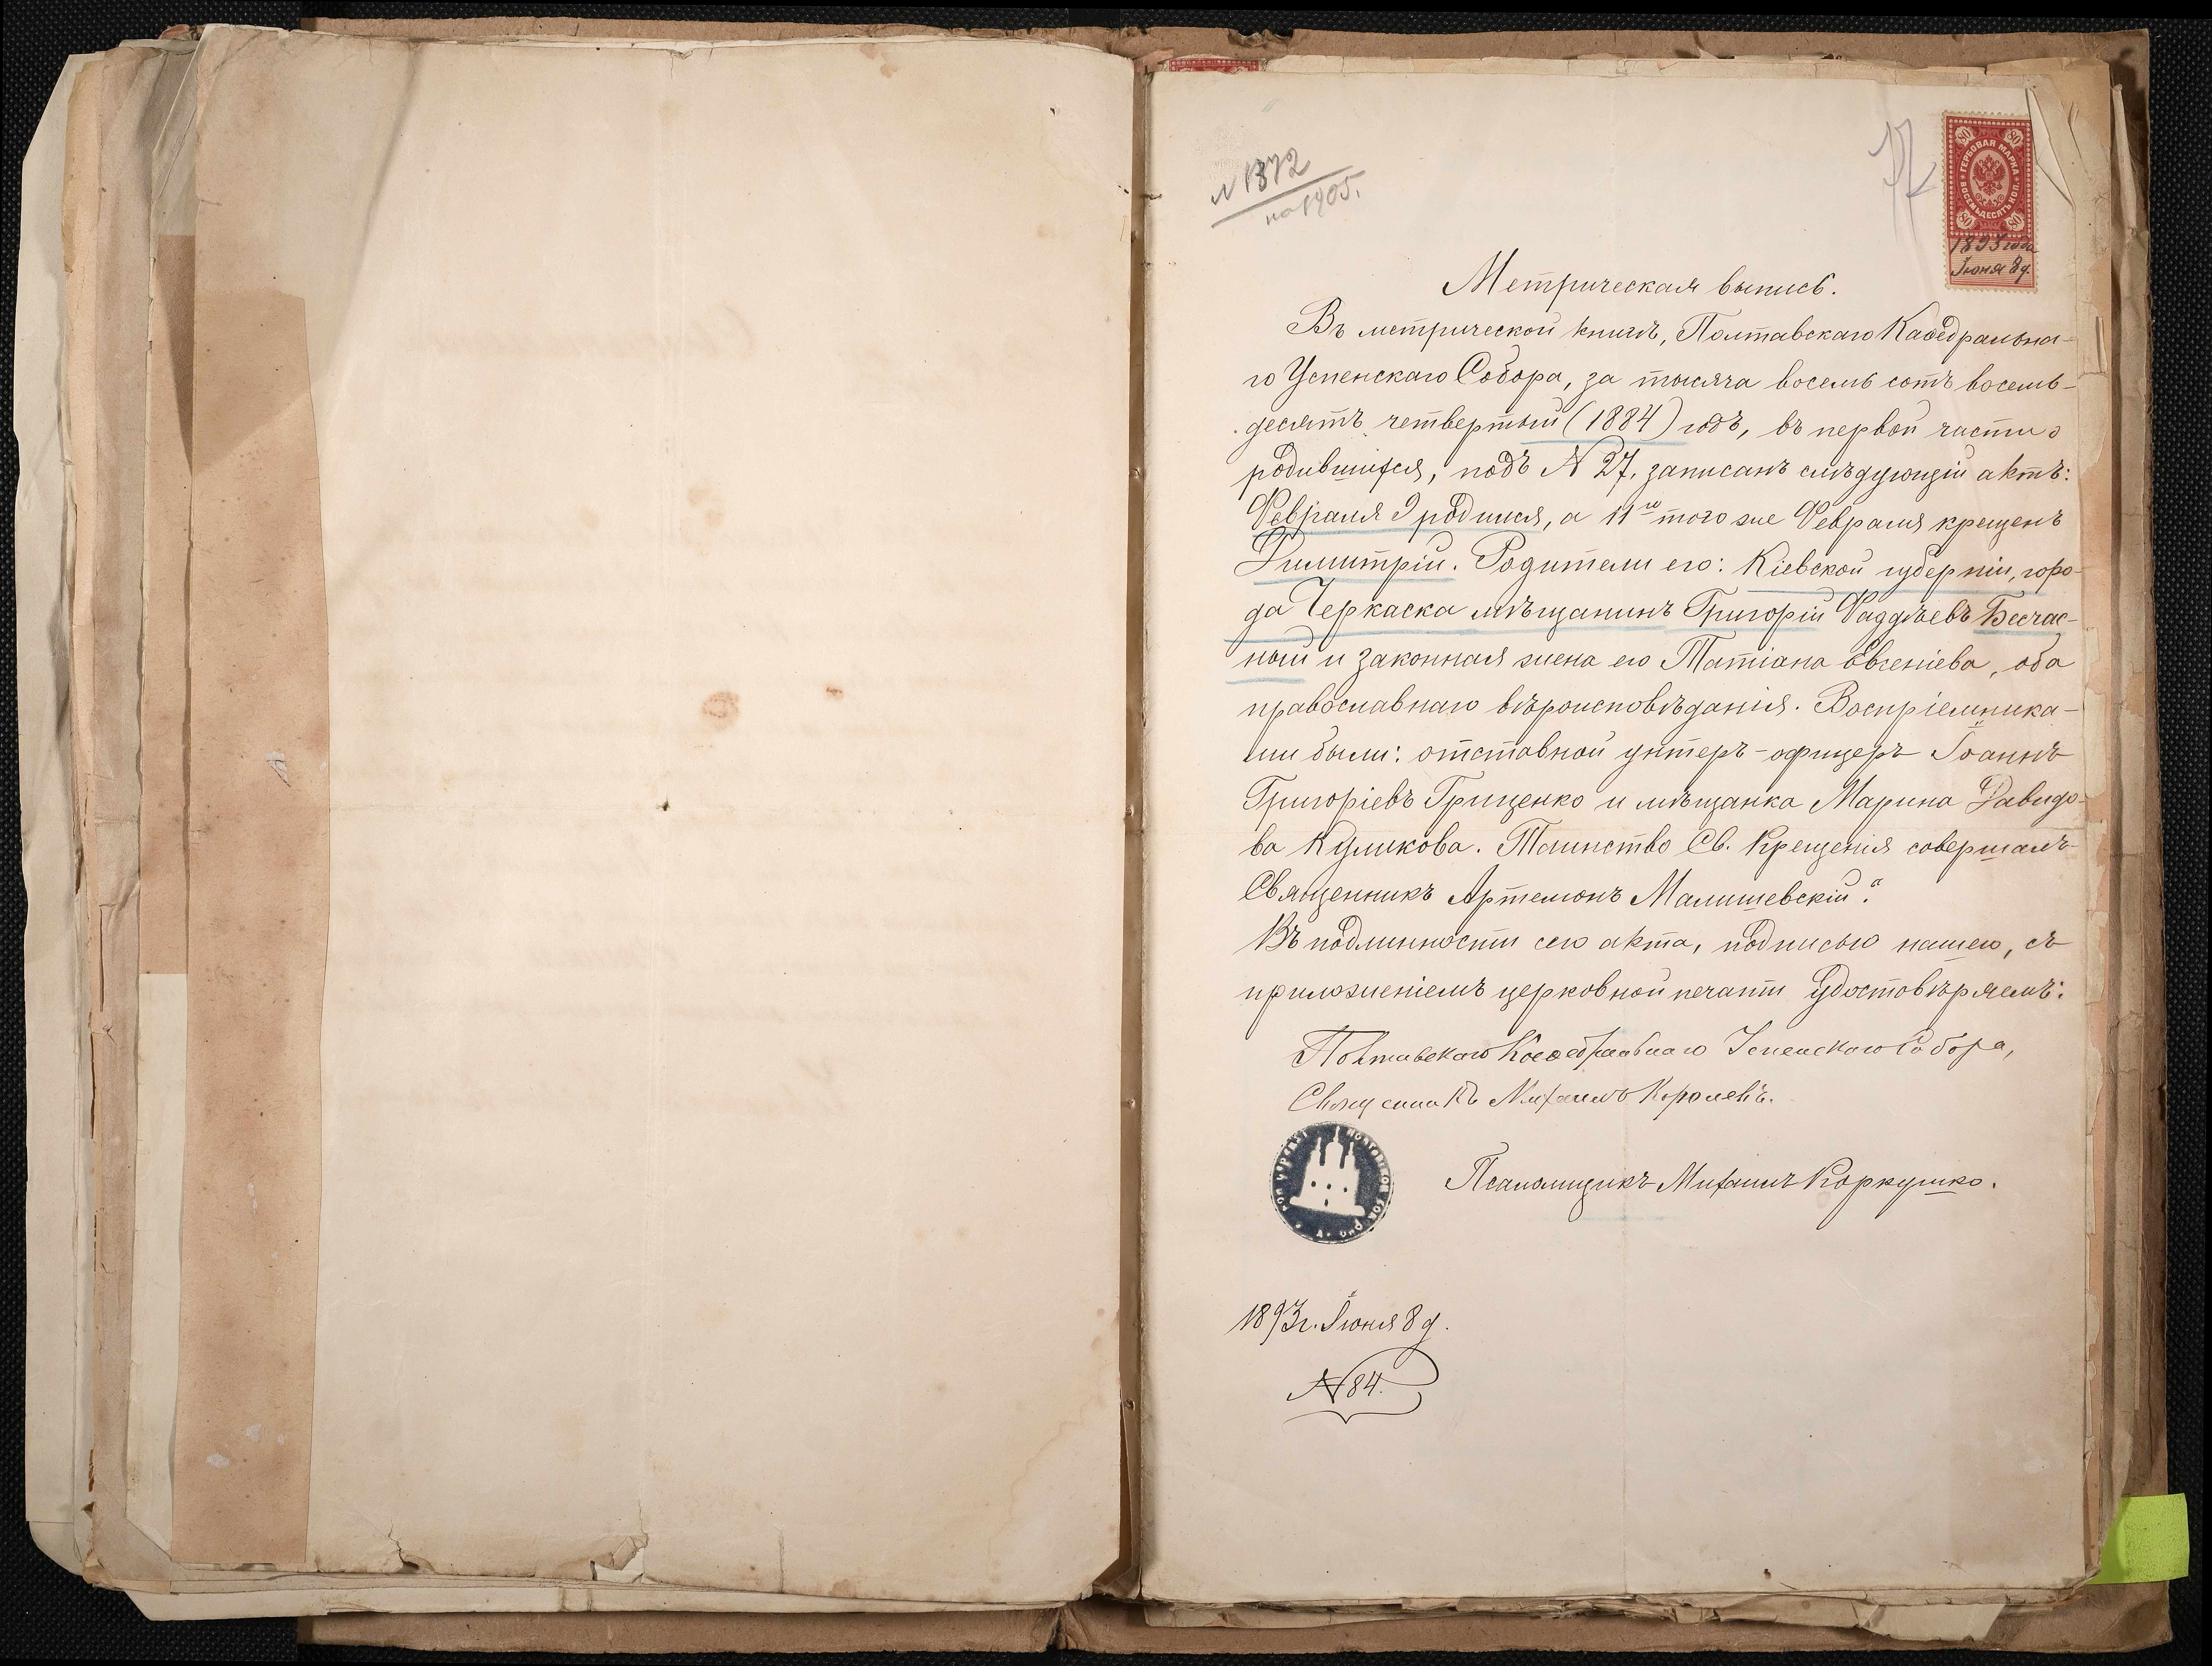 № 1372
на 1905.
80 80
ГЕРБОВАЯ МАРКА
ВОСЕМЬДЕСЯТЪ КОП.
80 80
1893 года
Іюня 8 д.
Метрическая выпись.
Въ метрической книгѣ, Полтавскаго Каѳедральна-
го Успенскаго Собора, за тысяча восемь сотъ восемь-
десятъ четвертый (1884) годъ, въ первой части о
родившихся, подъ № 27, записанъ слѣдующій актъ:
Февраля 9 родился, а 11го того же Февраля крещенъ
Димитрій. Родители его: Кіевской губерніи, горо-
да Черкаска мѣщанинъ Григорій Фаддѣевъ Бесчас-
ный и законная жена его Татіана Евгеніева, оба
православнаго вѣроисповѣданія. Воспріемника-
ми были: отставной унтеръ-офицеръ Іоаннъ
Григоріевъ Гриценко и мѣщанка Марина Давидо-
ва Куликова. Таинство Св. Крещенія совершалъ
Священникъ Артемонъ Малишевскій."
Въ подлинности сего акта, подписью нашею, съ
приложеніемъ церковной печати удостовѣряемъ:
Полтавскаго Каѳедральнаго Успенскаго Собора,
Священникъ Михаилъ Королевъ.
Псаломщикъ Михаилъ Коркушко.
1893 г. Іюня 8 д.
№ 84.